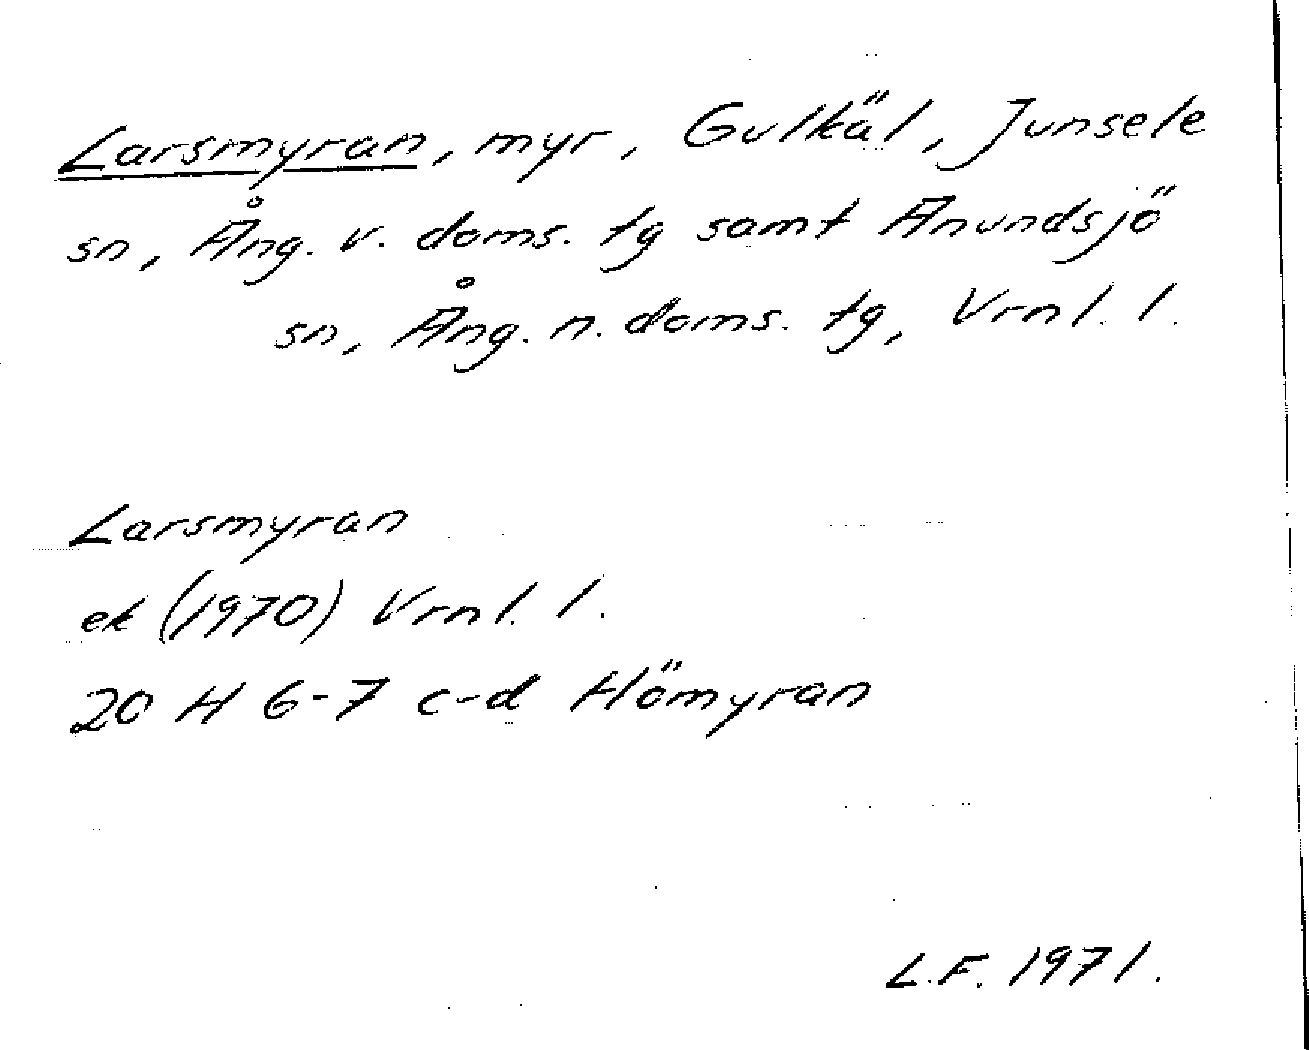 Larsmyran, myr, Gulkäl, Junsele
sn, Ång. v. doms. tg samt Anundsjö
sn, Ång. n. doms. tg, Vrnl. l.
Larsmyran
ek (1970) Vrnl. l.
20 H 6-7 c-d Hömyran
L.F. 1971.